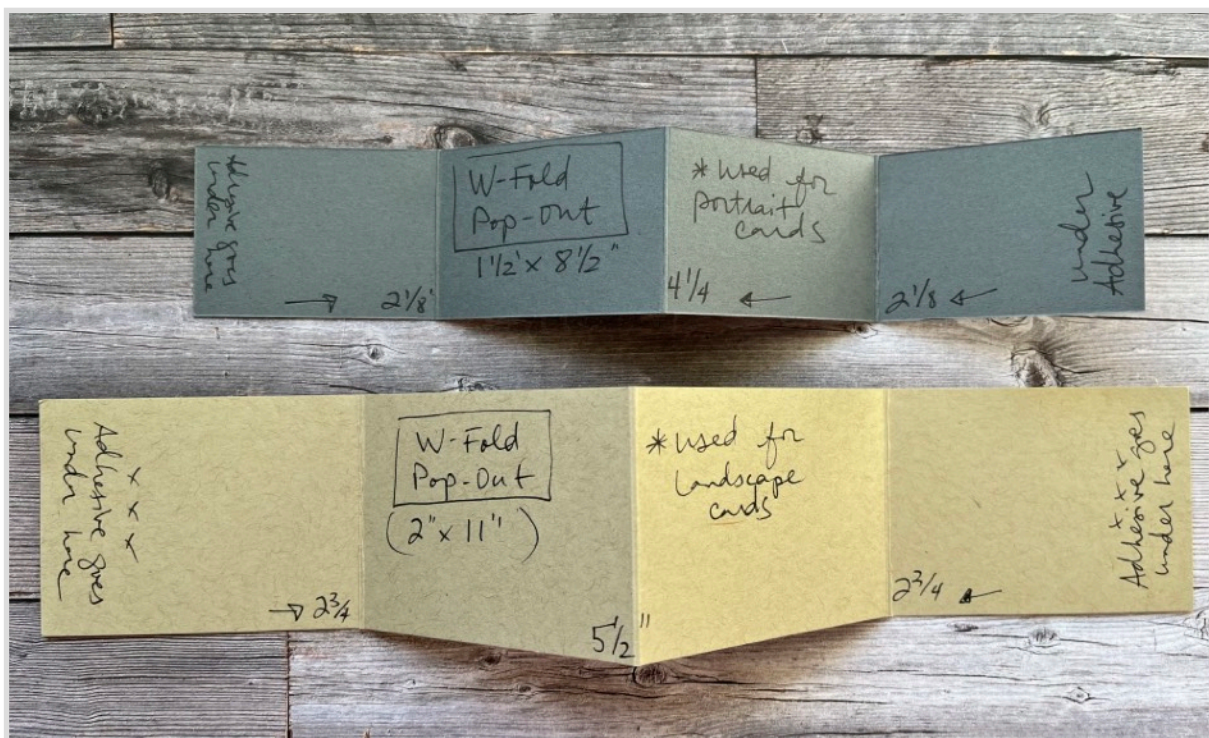 Adhesive goes
under here
W-Fold
Pop-Out
1 1/2' x 8 1/2"
* used for
portrait
cards
→ 2 1/8'
4 1/4 ←
2 1/8 ←
under
Adhesive
Adhesive goes
under here
x x x
W-Fold
Pop-Out
(2" x 11")
* used for
Landscape
cards
→ 2 3/4
5 1/2"
2 3/4 ←
x x x x
Adhesive goes
under here